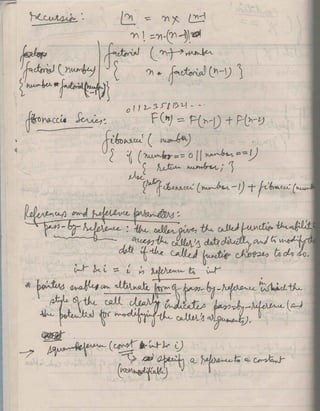 recursion : n = n x n-1
n! = n(n-1)
factorial ( n ) → number
factorial ( number )
{ n * factorial (n-1) }
{ number * factorial (number-1)
0 1 1 2 3 5
fibonacci Series: F(n) = F(n-1) + F(n-2)
fibonacci ( number )
{ if (number == 0 || number == 1)
{ return number ; }
else
fibonacci (number -1) + fibonacci (num
References and reference parameters :
pass-by-reference : the caller gives the called function the abilit
access the caller's data directly, and to modify the
data if the called function chooses to do so.
int & i = i is reference to int
* pointers enables an alternate form of pass-by-reference in which the
style of the call clearly indicates pass-by-reference (and
the potential for modifying the caller's arguments).
→ squareReference ( const int & i )
specify a reference to a constant
(nonmodifiable)